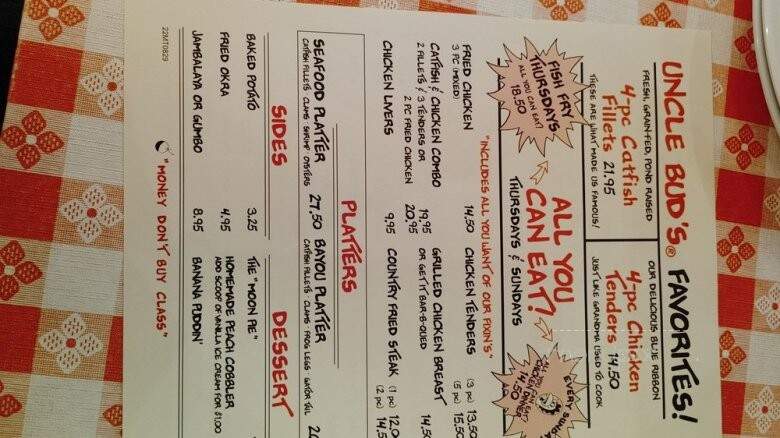 UNCLE BUD'S® FAVORITES!
FRESH, GRAIN-FED, POND RAISED
4-pc Catfish
Fillets 21.95
THESE ARE WHAT MADE US FAMOUS!
OUR DELICIOUS BLUE RIBBON
4-pc Chicken
Tenders 14.50
JUST LIKE GRANDMA USED TO COOK
FISH FRY
THURSDAYS
ALL YOU CAN EAT!
18.50
ALL YOU
CAN EAT?
THURSDAYS & SUNDAYS
EVERY SUNDAY
CHICKEN DINNER
14.50
"INCLUDES ALL YOU WANT OF OUR FIXIN'S"
FRIED CHICKEN 14.50
3 PC (MIXED)
CATFISH & CHICKEN COMBO
2 FILLETS & 3 TENDERS OR 19.95
2 PC FRIED CHICKEN 20.95
CHICKEN LIVERS 9.95
CHICKEN TENDERS (3 pc) 13.50
(5 pc) 15.50
GRILLED CHICKEN BREAST 14.5
OR GET IT BAR-B-QUED
COUNTRY FRIED STEAK (1 pc) 12.0
(2 pc) 14.5
PLATTERS
SEAFOOD PLATTER 27.50
CATFISH FILLETS CLAMS SHRIMP OYSTERS
BAYOU PLATTER
CATFISH FILLETS CLAMS FROG LEGS GATOR TAIL
SIDES
BAKED POTATO 3.25
FRIED OKRA 4.95
JAMBALAYA OR GUMBO 8.95
DESSERT
THE "MOON PIE"
HOMEMADE PEACH COBBLER
ADD SCOOP OF VANILLA ICE CREAM FOR $1.00
BANANA PUDDIN'
"MONEY DON'T BUY CLASS"
22MT0829